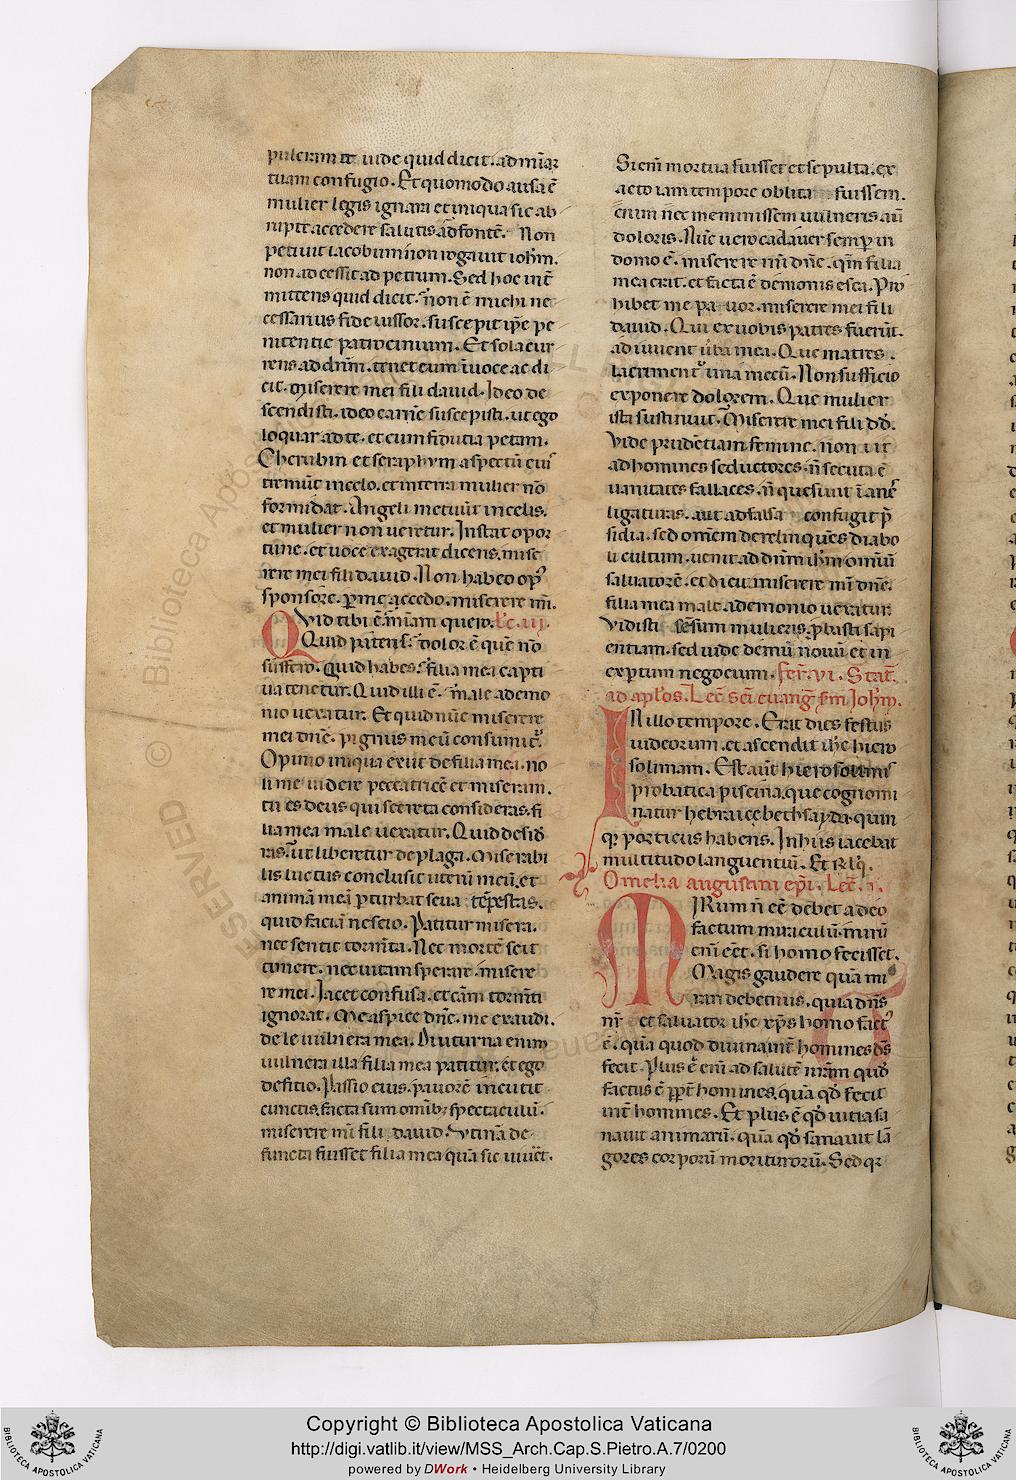 pulcrum et uide quid dicit. ad miãr
tuam confugio. Et quomodo ausa ẽ
mulier legis ignara et iniqua sic ab
rupte accedere salutis ad fontẽ. Non
petiuit iacobum non rogauit ioh̃m.
non accessit ad petrum. Sed hoc int̃
mittens quid dicit. non ẽ michi ne
cessarius fideiussor. suscepit ip̃e pe
nitentie patrocinium. Et sola cur
rens ad dñm. tenet eum ĩ uoce ac di
cit. miserere mei fili dauid. Ideo de
scendisti. ideo carnẽ suscepisti. ut ego
loquar ad te. et cum fidutia petam.
Cherubin et seraphym aspectũ eiuˀ
tremũt in celo. et in terra mulier nõ
formidat. Angeli metuũt in celis.
et mulier non ueretur. Instat opor
tune. et uoce exagerat dicens. mise
rere mei fili dauid. Non habeo opˀ
sponsore. ꝑ me accedo. miserere m̃.
Qvid tibi ẽ. miam quero. Lc̃. iij.
Quid pateris. dolor ẽ quẽ nõ
suffero. Quid habes. filia mei capti
ua tenetur. Quid illi ẽ. male a demo
nio uexatur. Et quid nũc miserere
mei dñe. pignus meũ consumitˀ.
Opinio iniqua exiit de filia mea. no
li me uidere peccatricẽ et miseram.
tu es deus qui secreta consideras. fi
lia mea male uexatur. Quid desid̃
ras. ut liberetur de plaga. Miserabi
lis luctus conclusit uterũ meũ. et
animã meã ꝑturbat seua tẽpestas.
quid faciã nescio. Patitur misera.
nec sentit torm̃ta. Nec mortẽ scit
timere. nec uitam sperare. misere
re mei. Iacet confusa. et cãm torm̃ti
ignorat. Me aspice dñe. me exaudi.
dele uulnera mea. Diuturna enim
uulnera illa filia mea patitur. et ego
defitio. Passio eius. pauorẽ incutit
cunctis. facta sum omĩbꝫ spectaculũ.
miserere m̃ fili dauid. Vtinã de
functa fuisset filia mea quã sic uiuẽt.
Si eni mortua fuisset et sepulta. ex
acto iam tempore oblita fuissem.
enim nec meminissem uulneris aũ
doloris. Nũc uero cadauer semꝑ in
domo ẽ. miserere m̃ dñe. qm̃ filia
mea erit. et facta ẽ demonis esca. Pro
hibet me pauor. miserere mei fili
dauid. Qui ex uobis patres fuerũt.
adiuuent ũba mea. Que matres.
lacrimentˀ una mecũ. Non sufficio
exponere dolorem. Que mulier
ista sustinuit. Miserere mei fili dˀd.
Vide prudẽtiam femine. non iit
ad homines seductores. ñ secuta ẽ
uanitates fallaces. ñ quesiuit ĩanẽˀ
ligaturas. aut ad falsa confugit p̃
sidia. sed om̃em derelinquẽs diabo
li cultum. uenit ad dñm ih̃m omiũ
saluatorẽ. et dicit. miserere m̃ dñe.
filia mea male a demonio uexatur
Vidisti sẽsum mulieris. ꝓbasti sapi
entiam. sed uide demũ nouũ et in
exꝑtum negocium. fer̃. vi. Stat̃.
ad apl̃os. Lec̃. sc̃i euang̃. s̃m Ioh̃m.
IN illo tempore. Erat dies festus
iudeorum. et ascendit ih̃c hiero
solimam. Est aũt hierosolimis
probatica piscina. que cognomi
natur hebraice bethsayda. quin
qꝫ porticus habens. In hiis iacebat
multitudo languentiũ. Et Rl̃q̃.
Omelia augustini ep̃i. Lec̃. j.
MIRum ñ eẽ debet a deo
factum miraculũ. mirũ
eni eẽt. si homo fecisset.
Magis gaudere quã mi
rari debemus. quia dñs
nr̃ et saluator ih̃c xp̃s homo factˀ
ẽ. quã quod diuina int̃ homines dˀs
fecit. Plus ẽ eni ad salutẽ nr̃am quod
factus ẽ ꝓpt̃ homines. quã qd̃ fecit
int̃ homines. Et plus ẽ qd̃ uitia sa
nauit animarũ. quã qd̃ sanauit lã
gores corporũ moriturorũ. Sed qꝛ
Copyright © Biblioteca Apostolica Vaticana
http://digi.vatlib.it/view/MSS_Arch.Cap.S.Pietro.A.7/0200
powered by DWork • Heidelberg University Library